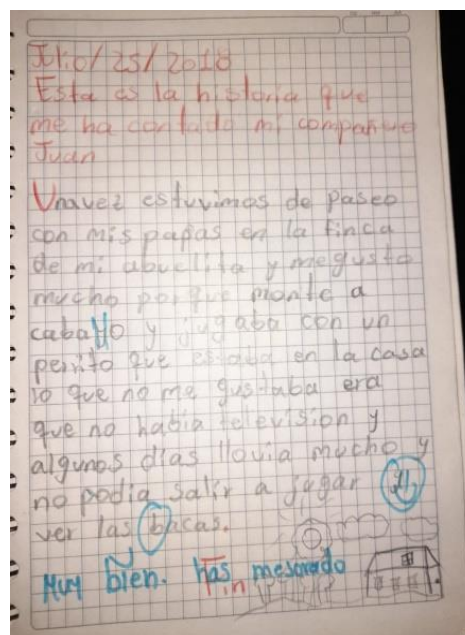 Julio/25/2018
Esta es la historia que
me ha contado mi compañero
Juan
Unavez estuvimos de paseo
con mis papas en la finca
de mi abuelita y megusto
mucho porque monte a
caballo y jugaba con un
perrito que estaba en la casa
lo que no me gustaba era
que no habia television y
algunos dias llovia mucho y
no podia salir a jugar y
ver las bacas.
Muy bien. has mejorado
Fin